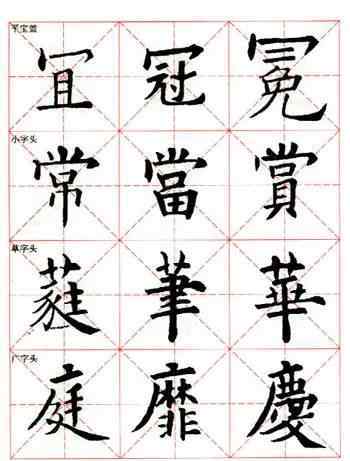 平宝盖
冝 冠 冕
小字头
常 當 賞
草字头
蕤 茟 華
广字头
庭 靡 慶